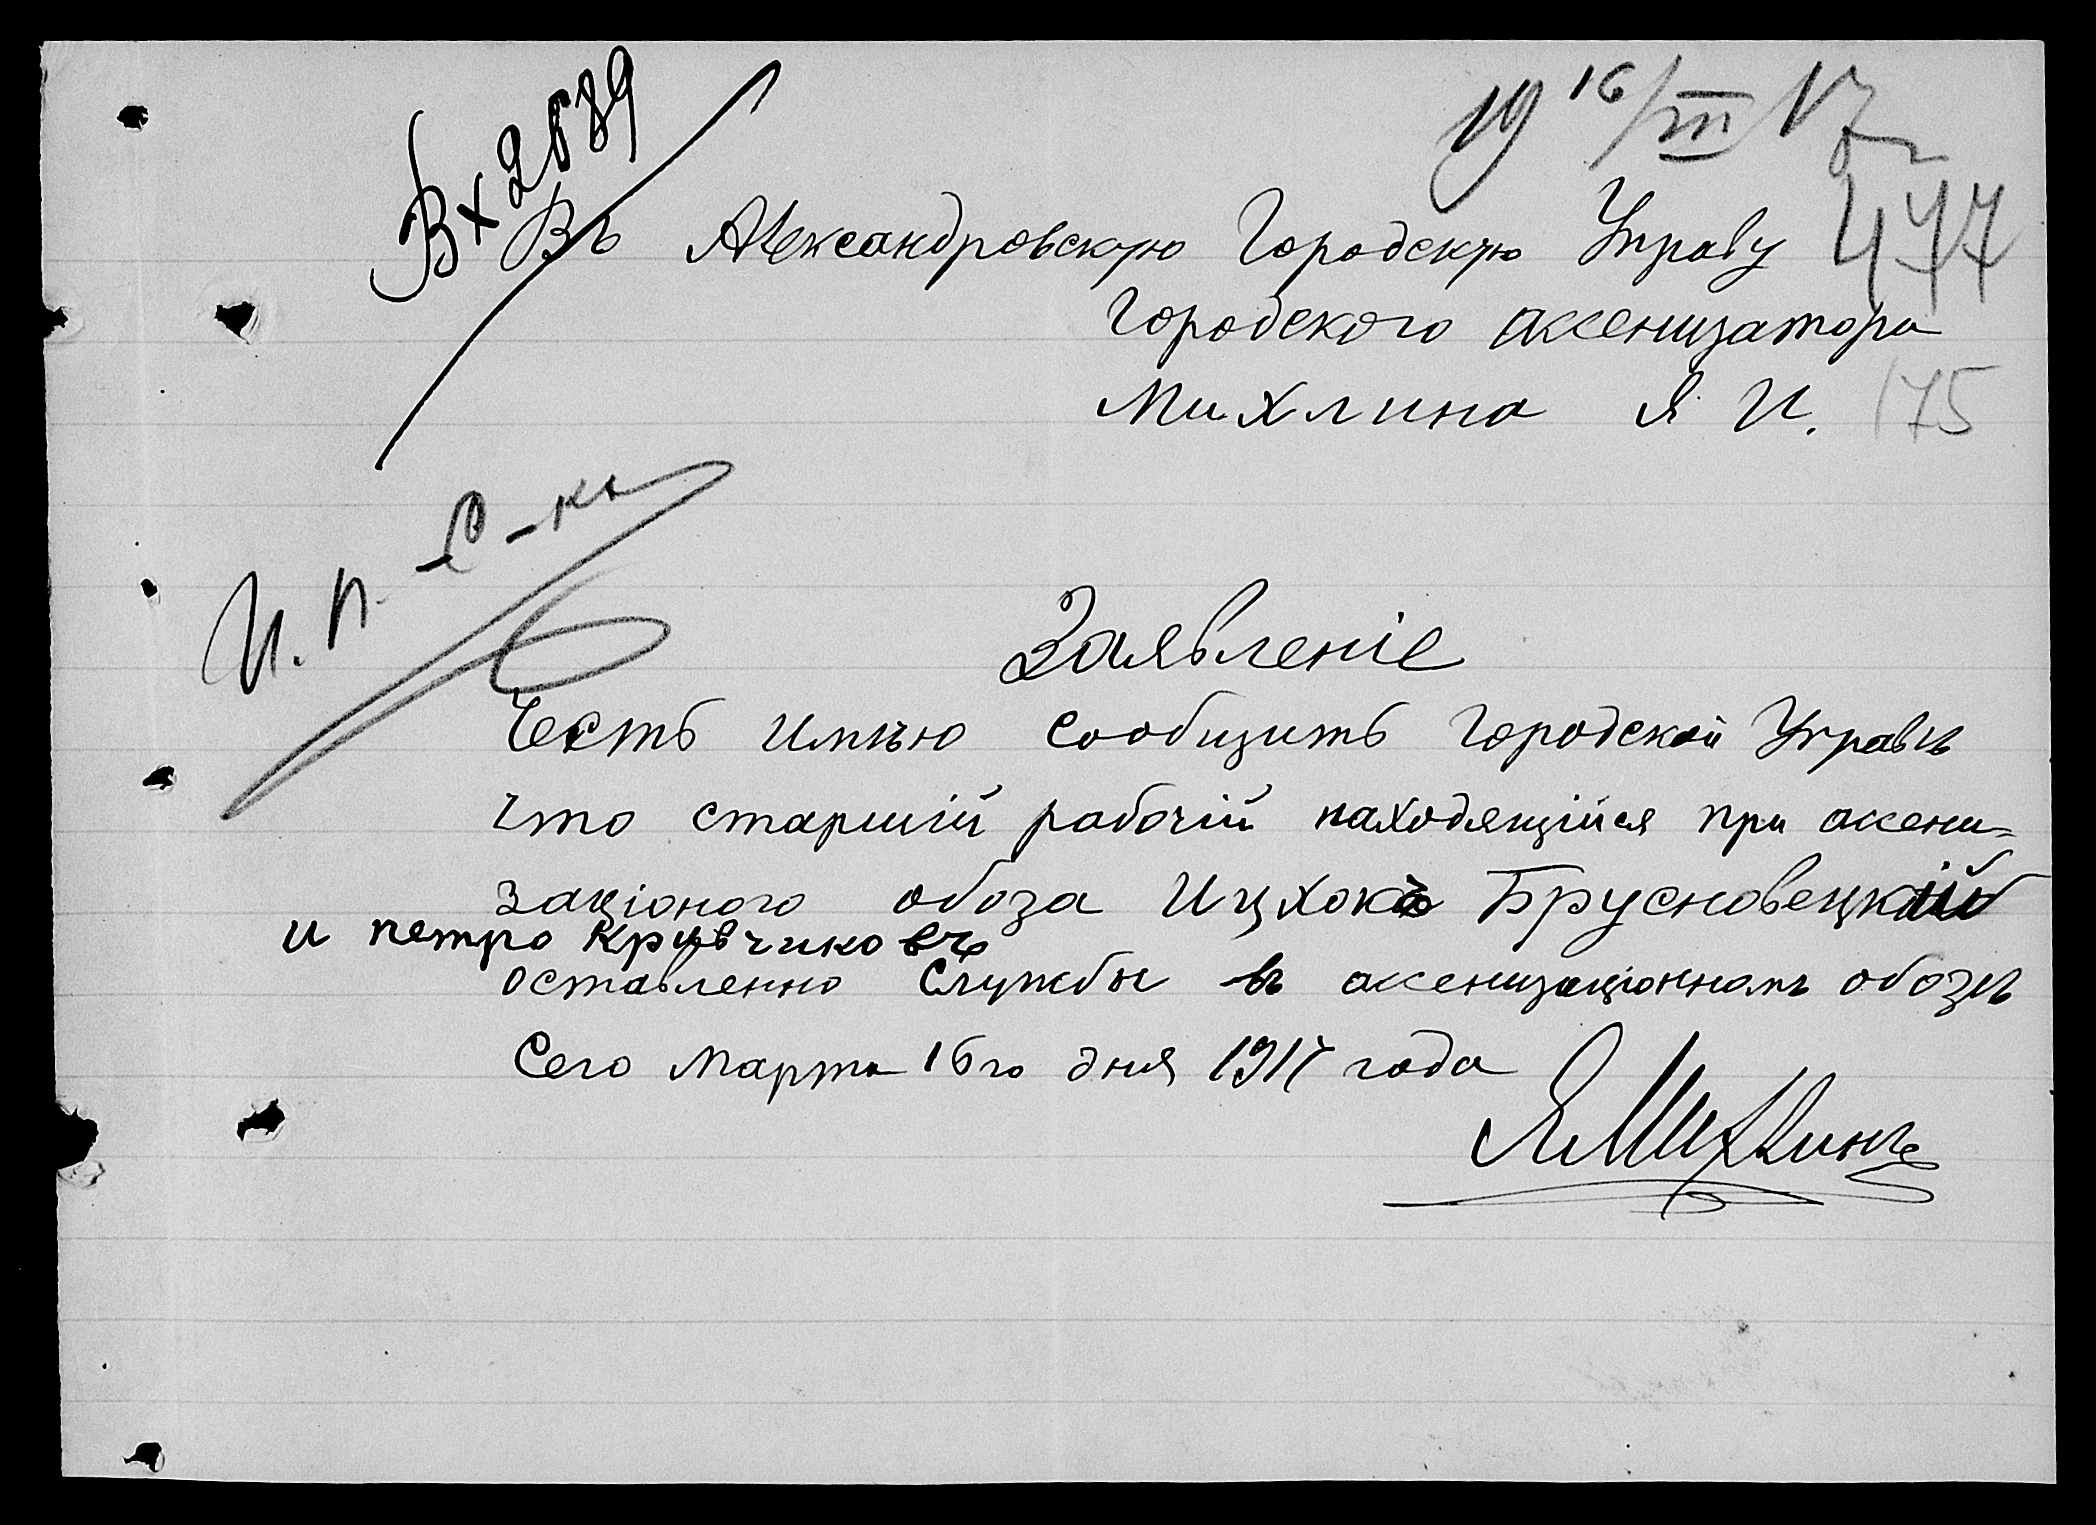 19 16/III 17 г
Вх 2889
477
Въ Александровскую Городскую Управу
Городского ассенизатора
Михлина Я И.
175
И. п. С-кь
Заявленіе
Честь имѣю сообщить Городской Управѣ
что старшій рабочій находящійся при асени=
заціоного обоза Ицхокъ Брусновецкій
и петро Кравчиковъ
оставленно Службы въ ассенизаціонномъ обозѣ
Сего Марта 16го дня 1917 года
ЯМихлинъ